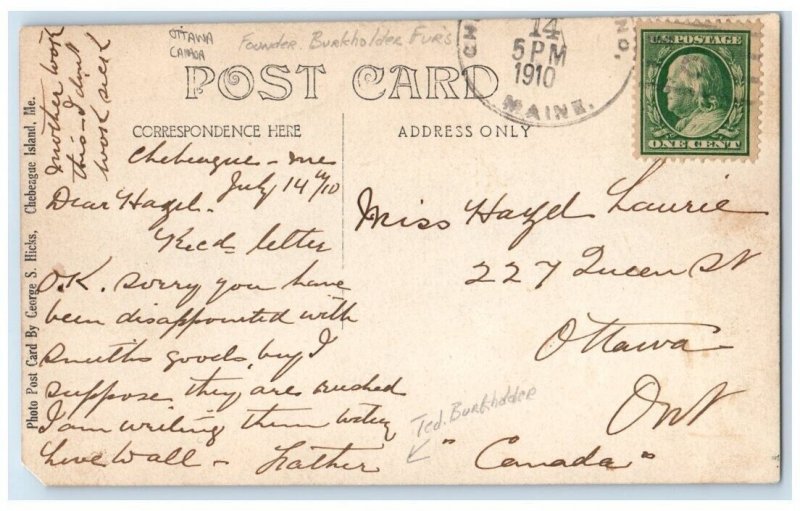 OTTAWA
CANADA
Founder. Burkholder Furs
14
5 PM
1910
MAINE.
U.S. POSTAGE
ONE CENT
POST CARD
CORRESPONDENCE HERE
ADDRESS ONLY
Photo Post Card By George S. Hicks, Chebeague Island, Me.
Another week
this - I dint
work
Chebeague - me
July 14th/10
Dear Hazel.
Recd letter
O.K. sorry you have
been disappointed with
smiths goods, but I
suppose they are rushed
I am writing them today
Love to all - Father
Ted. Burkholder
Miss Hazel Laurie
227 Queen St
Ottawa
Ont
"Canada"